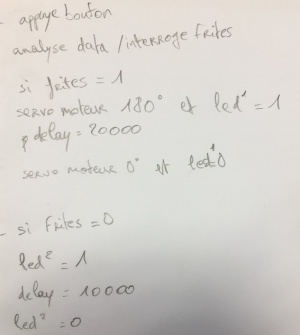 - appuye bouton
analyse data / interroge frites
si frites = 1
servo moteur 180° et led¹ = 1
delay = 20000
servo moteur 0° et led¹ 0
- si Frites = 0
led² = 1
delay = 10000
led² = 0